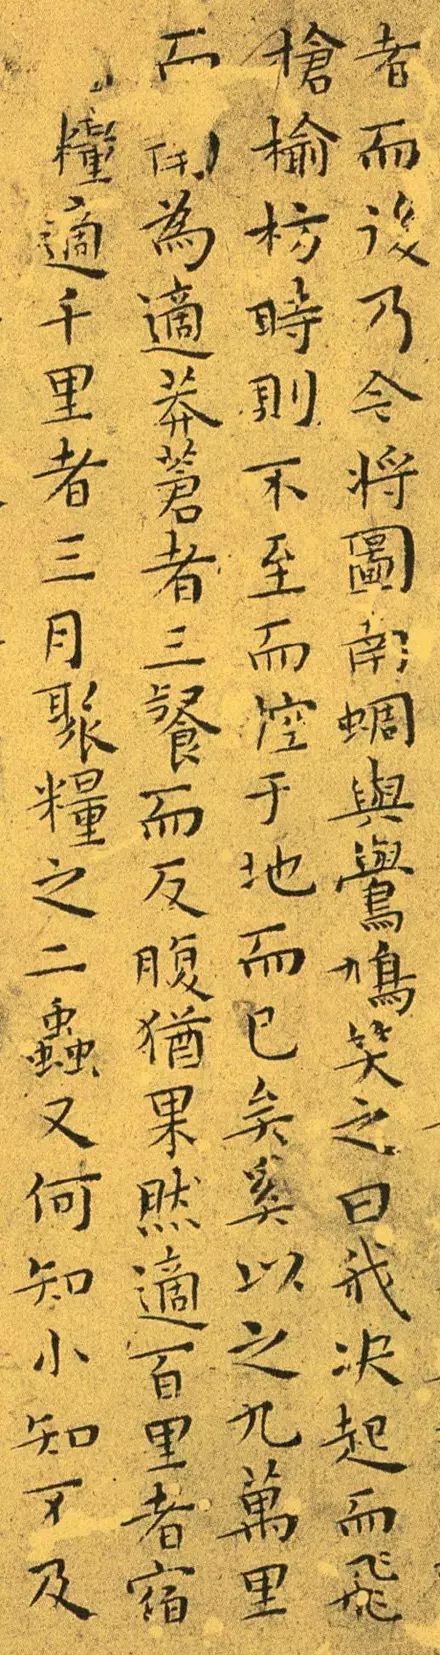 者而後乃今將圖南蜩與鷽鳩笑之曰我決起而飛
槍榆枋時則不至而控于地而已矣奚以之九萬里
而 為適莽蒼者三飡而反腹猶果然適百里者宿
糧適千里者三月聚糧之二蟲又何知小知不及